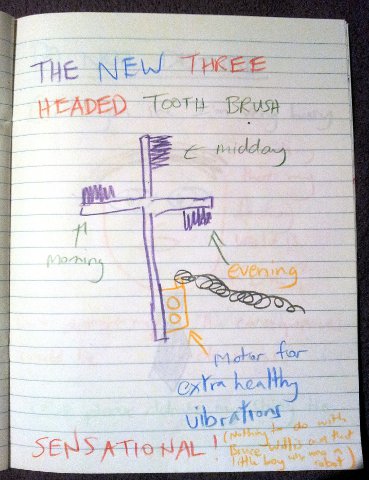 THE NEW THREE
HEADED TOOTH BRUSH
midday
morning
evening
Motor for
extra healthy
vibrations
SENSATIONAL!
(Nothing to do with
Bruce Willis and that
little boy who was a
robot)